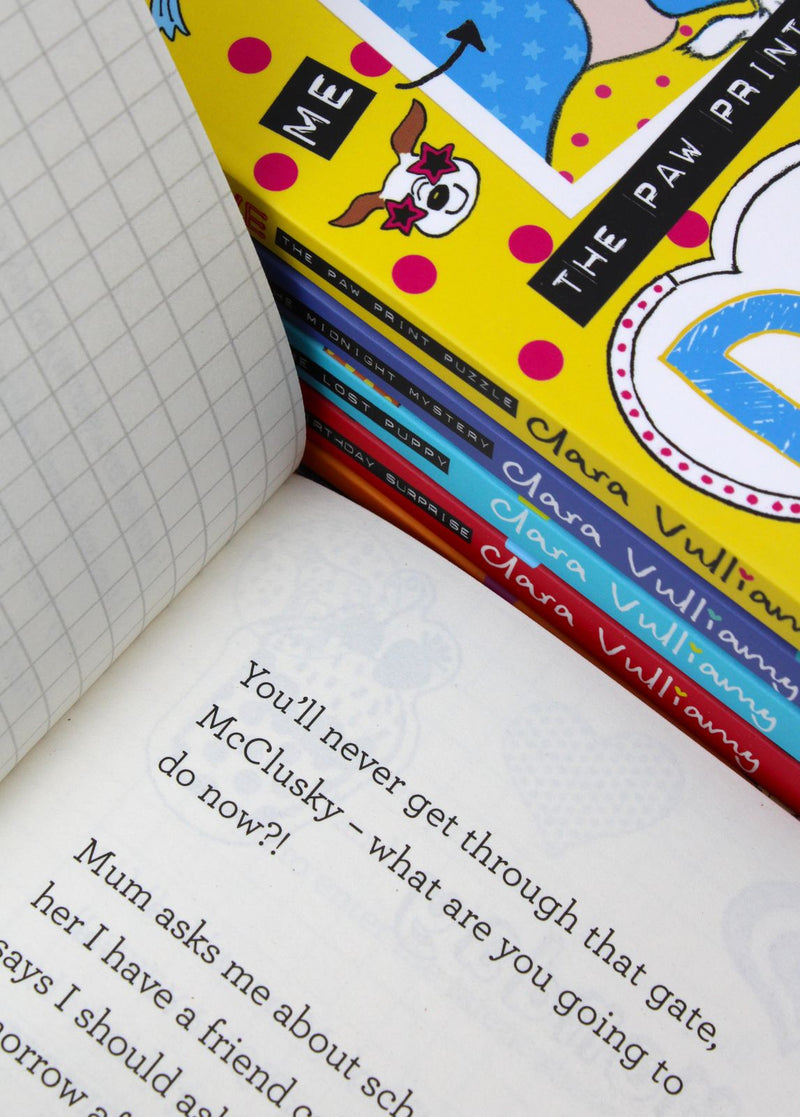 ME
THE PAW PRINT
THE PAW PRINT PUZZLE Clara Vulliamy
MIDNIGHT MYSTERY Clara Vulliamy
LOST PUPPY Clara Vulliamy
SURPRISE Clara Vulliamy
You'll never get through that gate,
McClusky – what are you going to
do now?!
Mum asks me about
her I have a friend
says I should